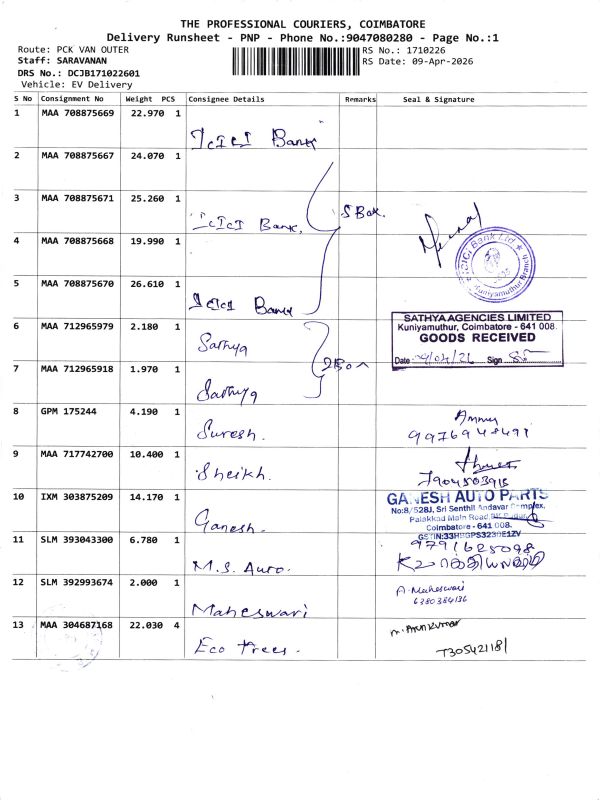 THE PROFESSIONAL COURIERS, COIMBATORE
Delivery Runsheet - PNP - Phone No.:9047080280 - Page No.:1
Route: PCK VAN OUTER
RS No.: 1710226
Staff: SARAVANAN
RS Date: 09-Apr-2026
DRS No.: DCJB171022601
Vehicle: EV Delivery
S No Consignment No Weight PCS Consignee Details Remarks Seal & Signature
1 MAA 708875669 22.970 1 ICICI Bank
2 MAA 708875667 24.070 1
3 MAA 708875671 25.260 1 ICICI Bank.
5 Box.
4 MAA 708875668 19.990 1
ICICI Bank Ltd
Kuniyamuthur Branch
5 MAA 708875670 26.610 1 ICICI Bank
SATHYA AGENCIES LIMITED
Kuniyamuthur, Coimbatore - 641 008.
GOODS RECEIVED
Date 9/04/26 Sign
6 MAA 712965979 2.180 1 Sathya
2 Box
7 MAA 712965918 1.970 1 Sathya
8 GPM 175244 4.190 1 Suresh.
9976948491
9 MAA 717742700 10.400 1 Sheikh.
7904503915
10 IXM 303875209 14.170 1 Ganesh.
GANESH AUTO PARTS
No:8/528J, Sri Senthil Andavar Complex,
Palakkad Main Road,
Coimbatore - 641 008.
GSTIN:33HBGPS3230E1ZV
11 SLM 393043300 6.780 1 M.S. Auto.
9791625098
12 SLM 392993674 2.000 1 Maheswari
A. Maheswari
6380384136
13 MAA 304687168 22.030 4 Eco Trees.
M. Arunkumar
T305421181